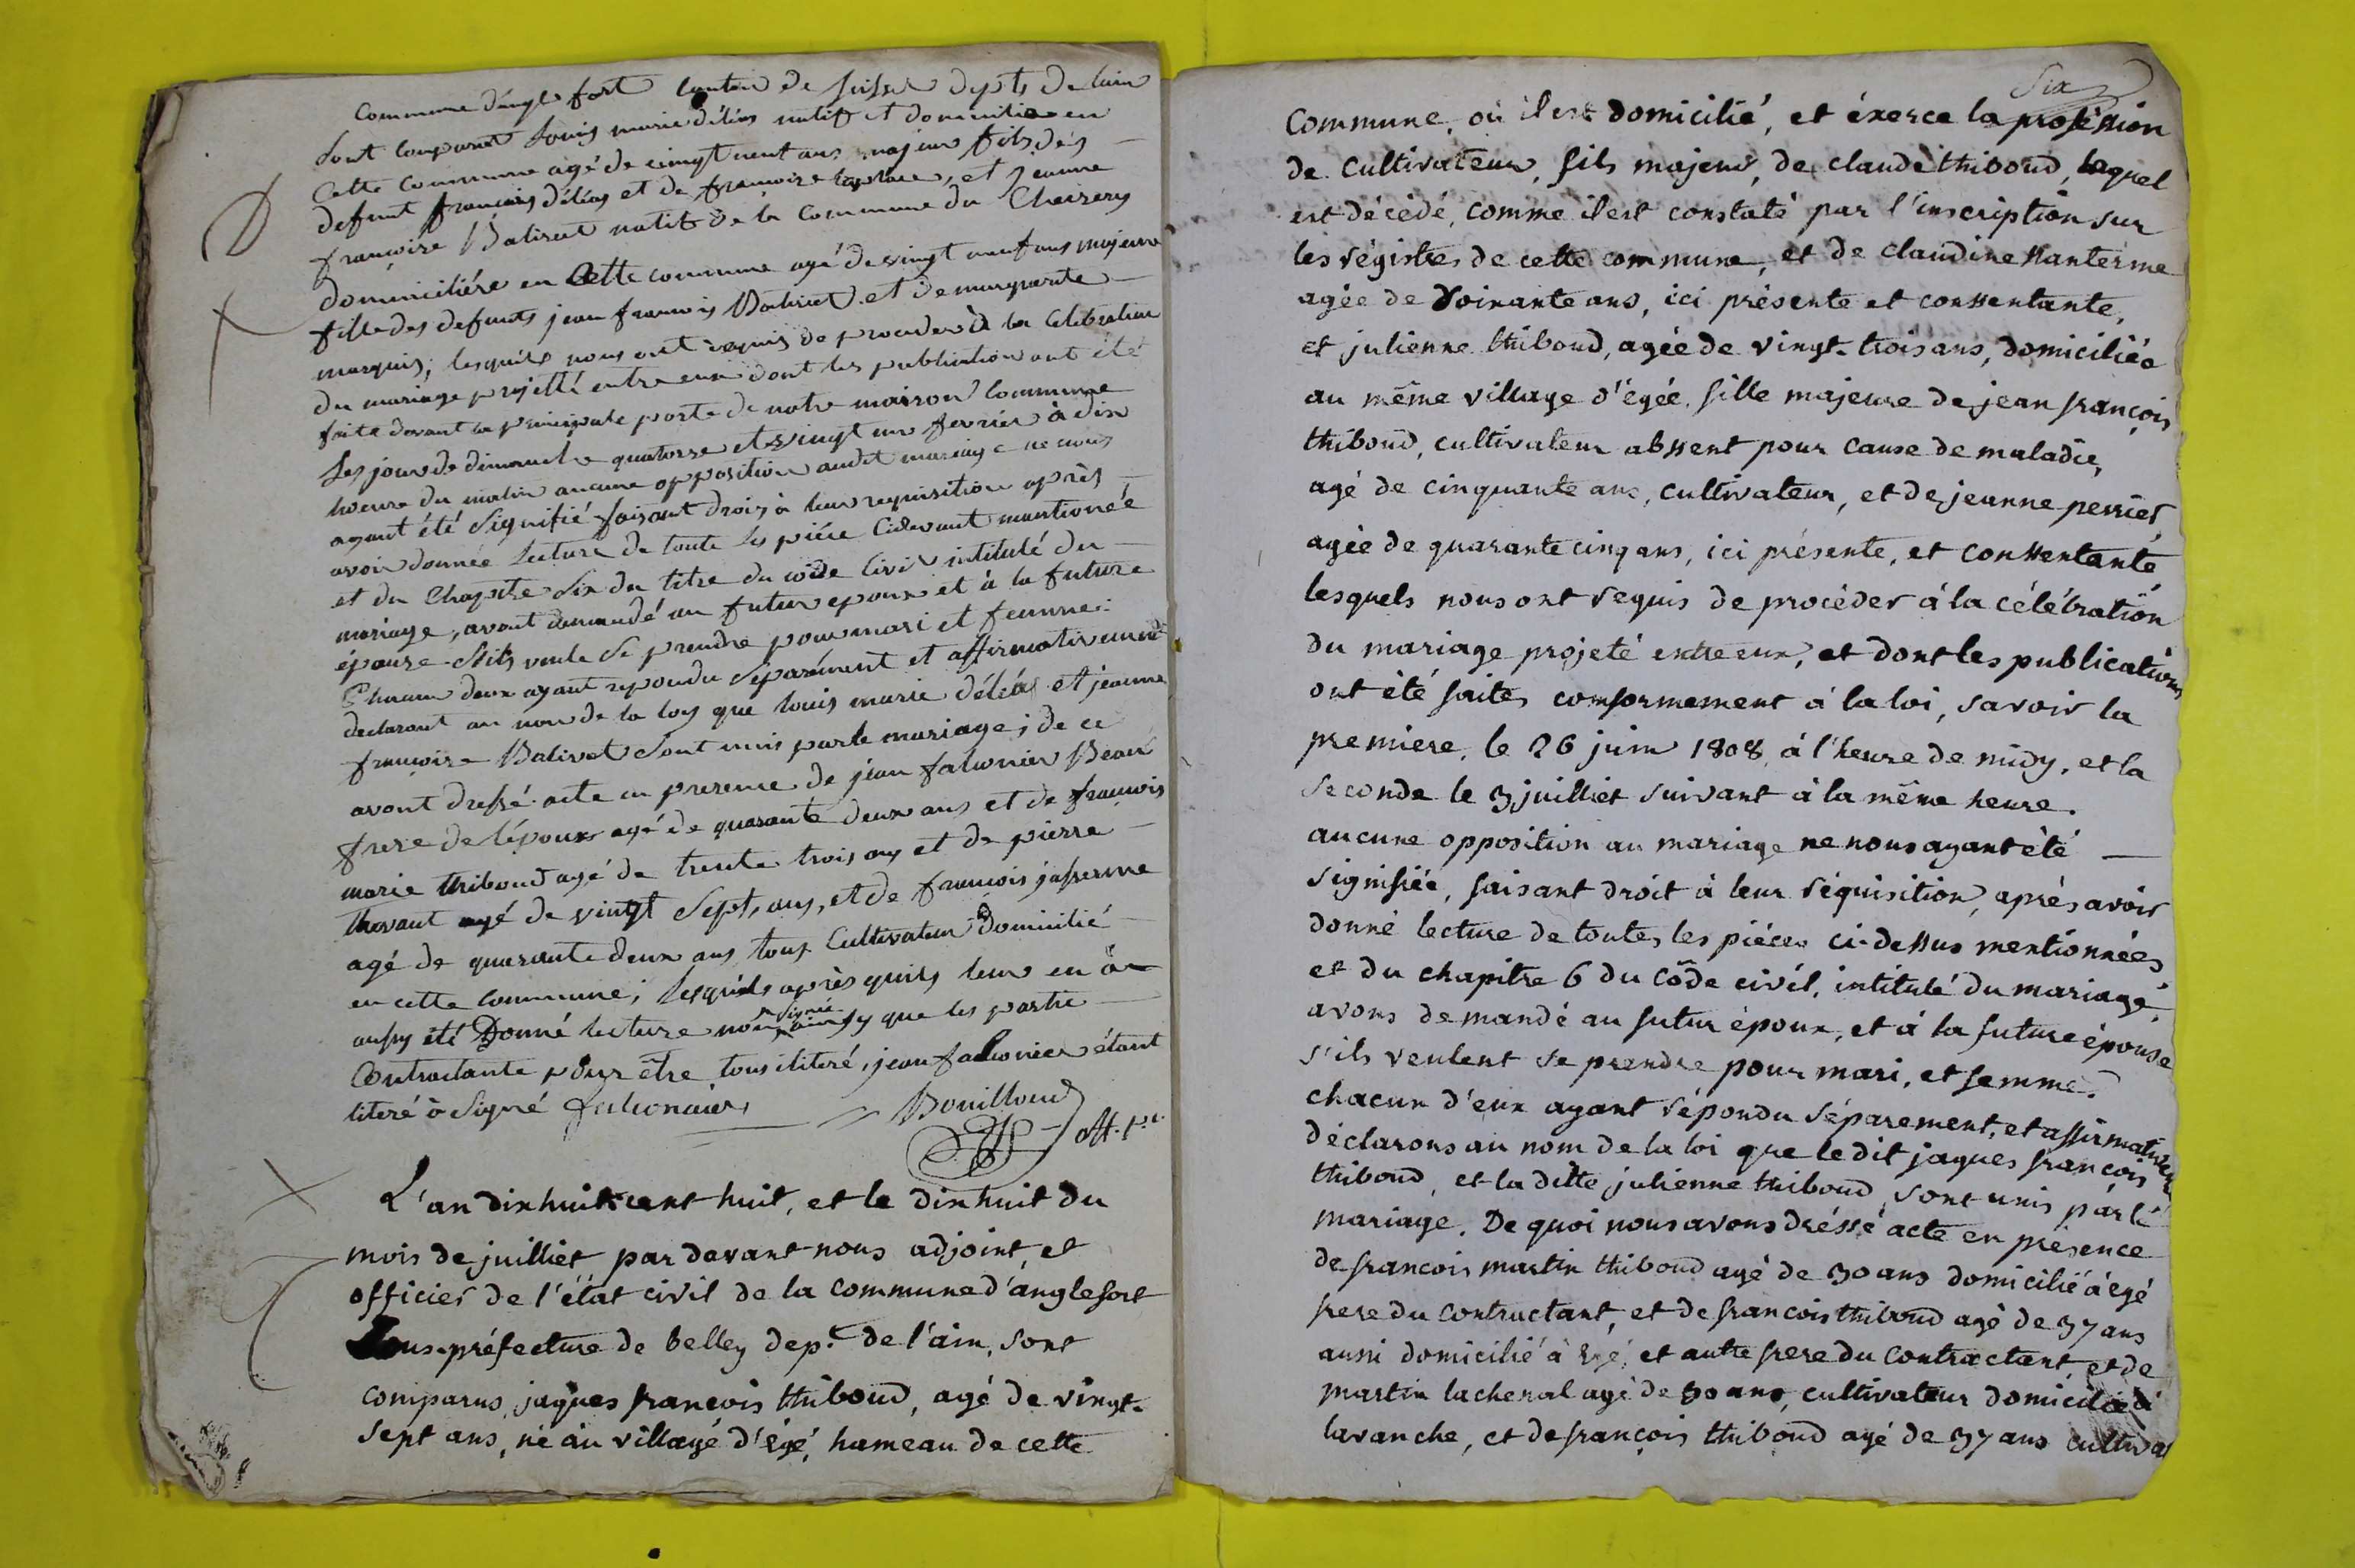 commune d'anglefort canton de seissel depts de lain
sont comparut louis marie déléas natif et domicilié en
cette commune agé de vingt neuf ans majeur fils dés
defunt francois déléas et de françoise laplace, et jeanne
françoise Balivet natif de la commune du Cheizery
domiciliére en cette commune agé de vingt neuf ans majeure
fille des defunts jean francois Balivet et de marguerite
marquis; lesquels nous ont requis de proceder à la celebration
du mariage projetté entre eux dont les publication ont été
faite devant la principale porte de notre maison commune
les jour de dimanche quatorze et vingt un fevrier à dix
hoeure du matin aucune opposition audit mariage ne nous
ayant été signifié faisant droit à leur requisition après
avoir donnée lecture de toute les piéce cidevant mantionéé
et du Chapitre six du titre du code civil intitulé du
mariage, avont demandé au futur epoux et à la future
épouse s'ils veule se prendre pour mari et femme:
Chacun deux ayant repondu séparément et affirmativement
declaront au nom de la loy que louis marie déléas et jeanne
françoise Balivet sont unis par le mariage; de ce
avont dressé acte en presence de jean falconier Beau
frere de lépoux agé de quarante deux ans et de françois
marie thiboud agé de trente trois ans et de pierre
thovant agé de vingt sept, ans, et de francois jasserme
agé de quarante deux ans tous Cultivateur domicilié
en cette commune; lesquels après quils leur en à
aussy été Donné lecture non signée ainsy que les partie
Contractante pour être tous iliteré, jean falconier étant
literé à signé falconier
Bouilloud
L'an dix huit cent huit, et le dix huit du
mois de juilliet par devant nous adjoint, et
officier de l'état civil de la commune d'anglefort
Sous-préfecture de belley dep.t de l'ain, sont
comparus, jaques francois thiboud, agé de vingt-
sept ans, né au village d'égé, hameau de cette
six
commune, où il est domicilié, et éxerce la profession
de cultivateur, fils majeur, de claude thiboud, lequel
est décédé, comme il est constaté par l'inscription sur
les régistres de cette commune, et de claudine nanterme
agée de soixante ans, ici présente et consentante,
et julienne thiboud, agée de vingt-trois ans, domiciliée
au même village d'égée, fille majeure de jean françois
thiboud, cultivateur absent pour cause de maladie,
agé de cinquante ans, cultivateur, et de jeanne perrier
agée de quarante cinq ans, ici présente, et consentante
lesquels nous ont requis de procéder à la célébration
du mariage projeté entre eux, et dont les publications
ont été faites conformement à la loi, savoir la
premiere, le 26 juin 1808, à l'heure de midy, et la
seconde le 3 juilliet suivant à la même heure.
aucune opposition au mariage ne nous ayant été
signifiée, faisant droit à leur réquisition, après avoir
donné lecture de toutes les piéces ci-dessus mentionnées
et du chapitre 6 du code civil, intitulé du mariage,
avons demandé au futur époux, et à la future épouse
s'ils veulent se prendre pour mari, et femme.
chacun d'eux ayant répondu séparement, et affirmativement
déclarons au nom de la loi que le dit jaques francois
thiboud, et la ditte julienne thiboud, sont unis par le
mariage. De quoi nous avons dréssé acte en présence
de francois martin thiboud agé de 30 ans domicilié à égé
frere du contractant, et de francois thiboud agé de 37 ans
aussi domicilié à égé, et autre frere du contractant et de
martin lachenal agé de 30 ans, cultivateur domicilié à
lavanche, et de françois thiboud agé de 37 ans